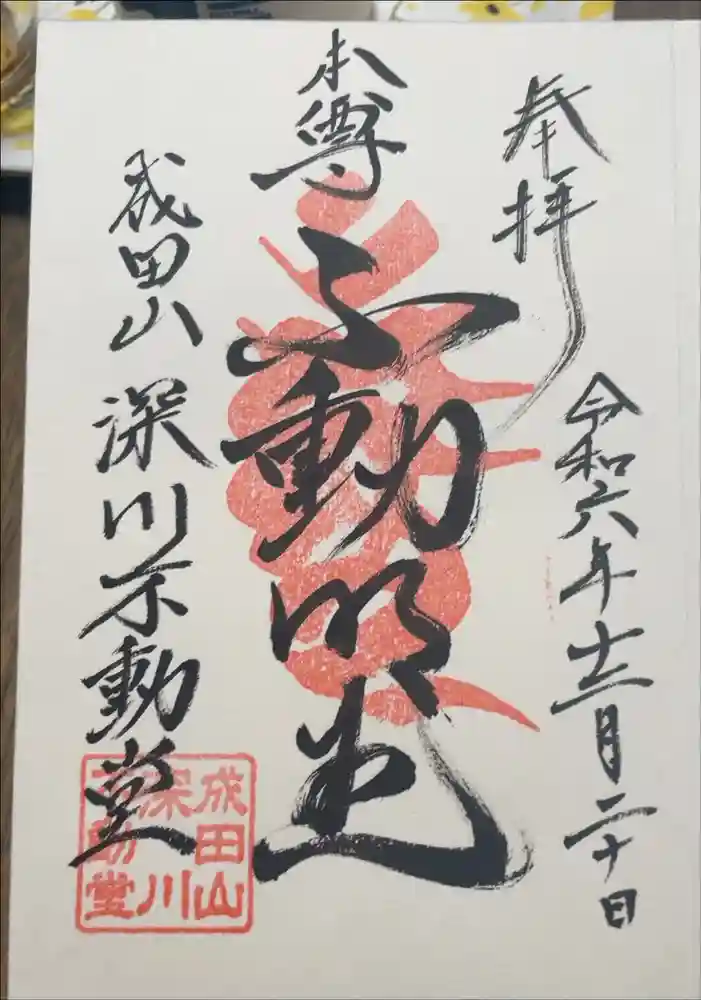 奉拝
令和六年十二月二十日
本尊
不動明王
成田山深川不動堂
成田山
深川
不動堂